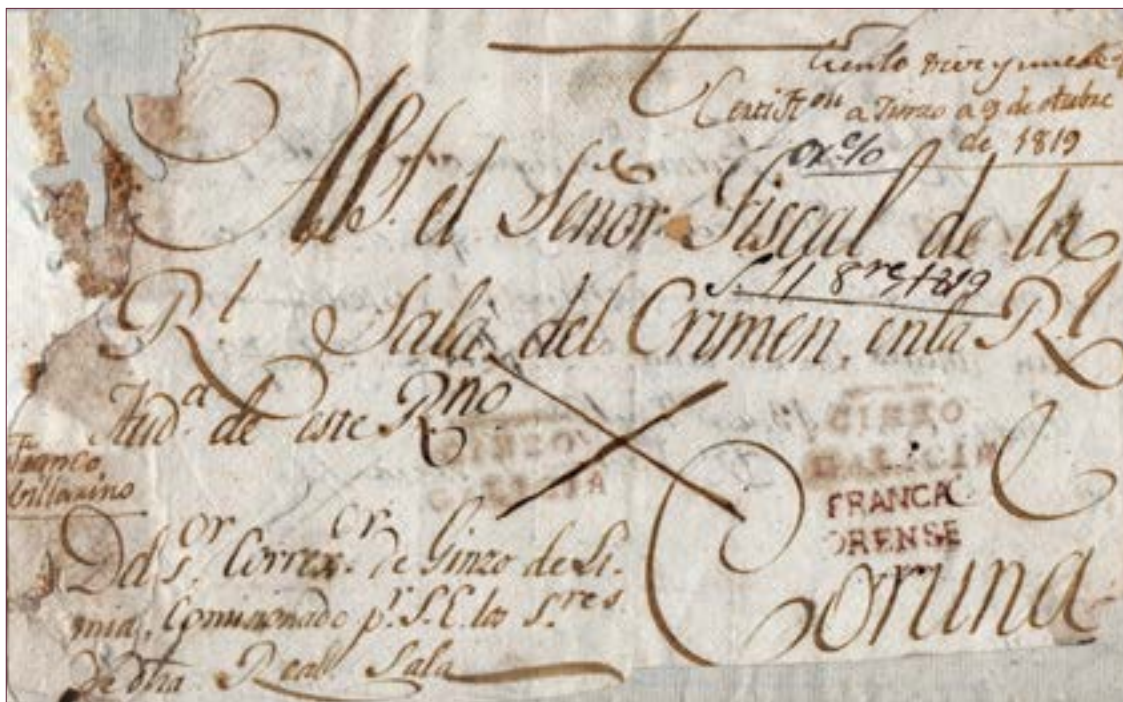 ciento diez y nueve
Certif.on a Ginzo a 9 de otubre
de 1819
Al S.r el Señor Fiscal de la
S. 11 8re 1819
R.l Sala del Crimen, en la R.l
Aud.a de este R.no
GINZO
GALICIA
GINZO
GALICIA
FRANCA
ORENSE
Franco
Villarino
Del S.or Correx.or de Ginzo de Li-
mia, Comisionado p.r S.E. los S.res
De otra Real Sala
Coruna